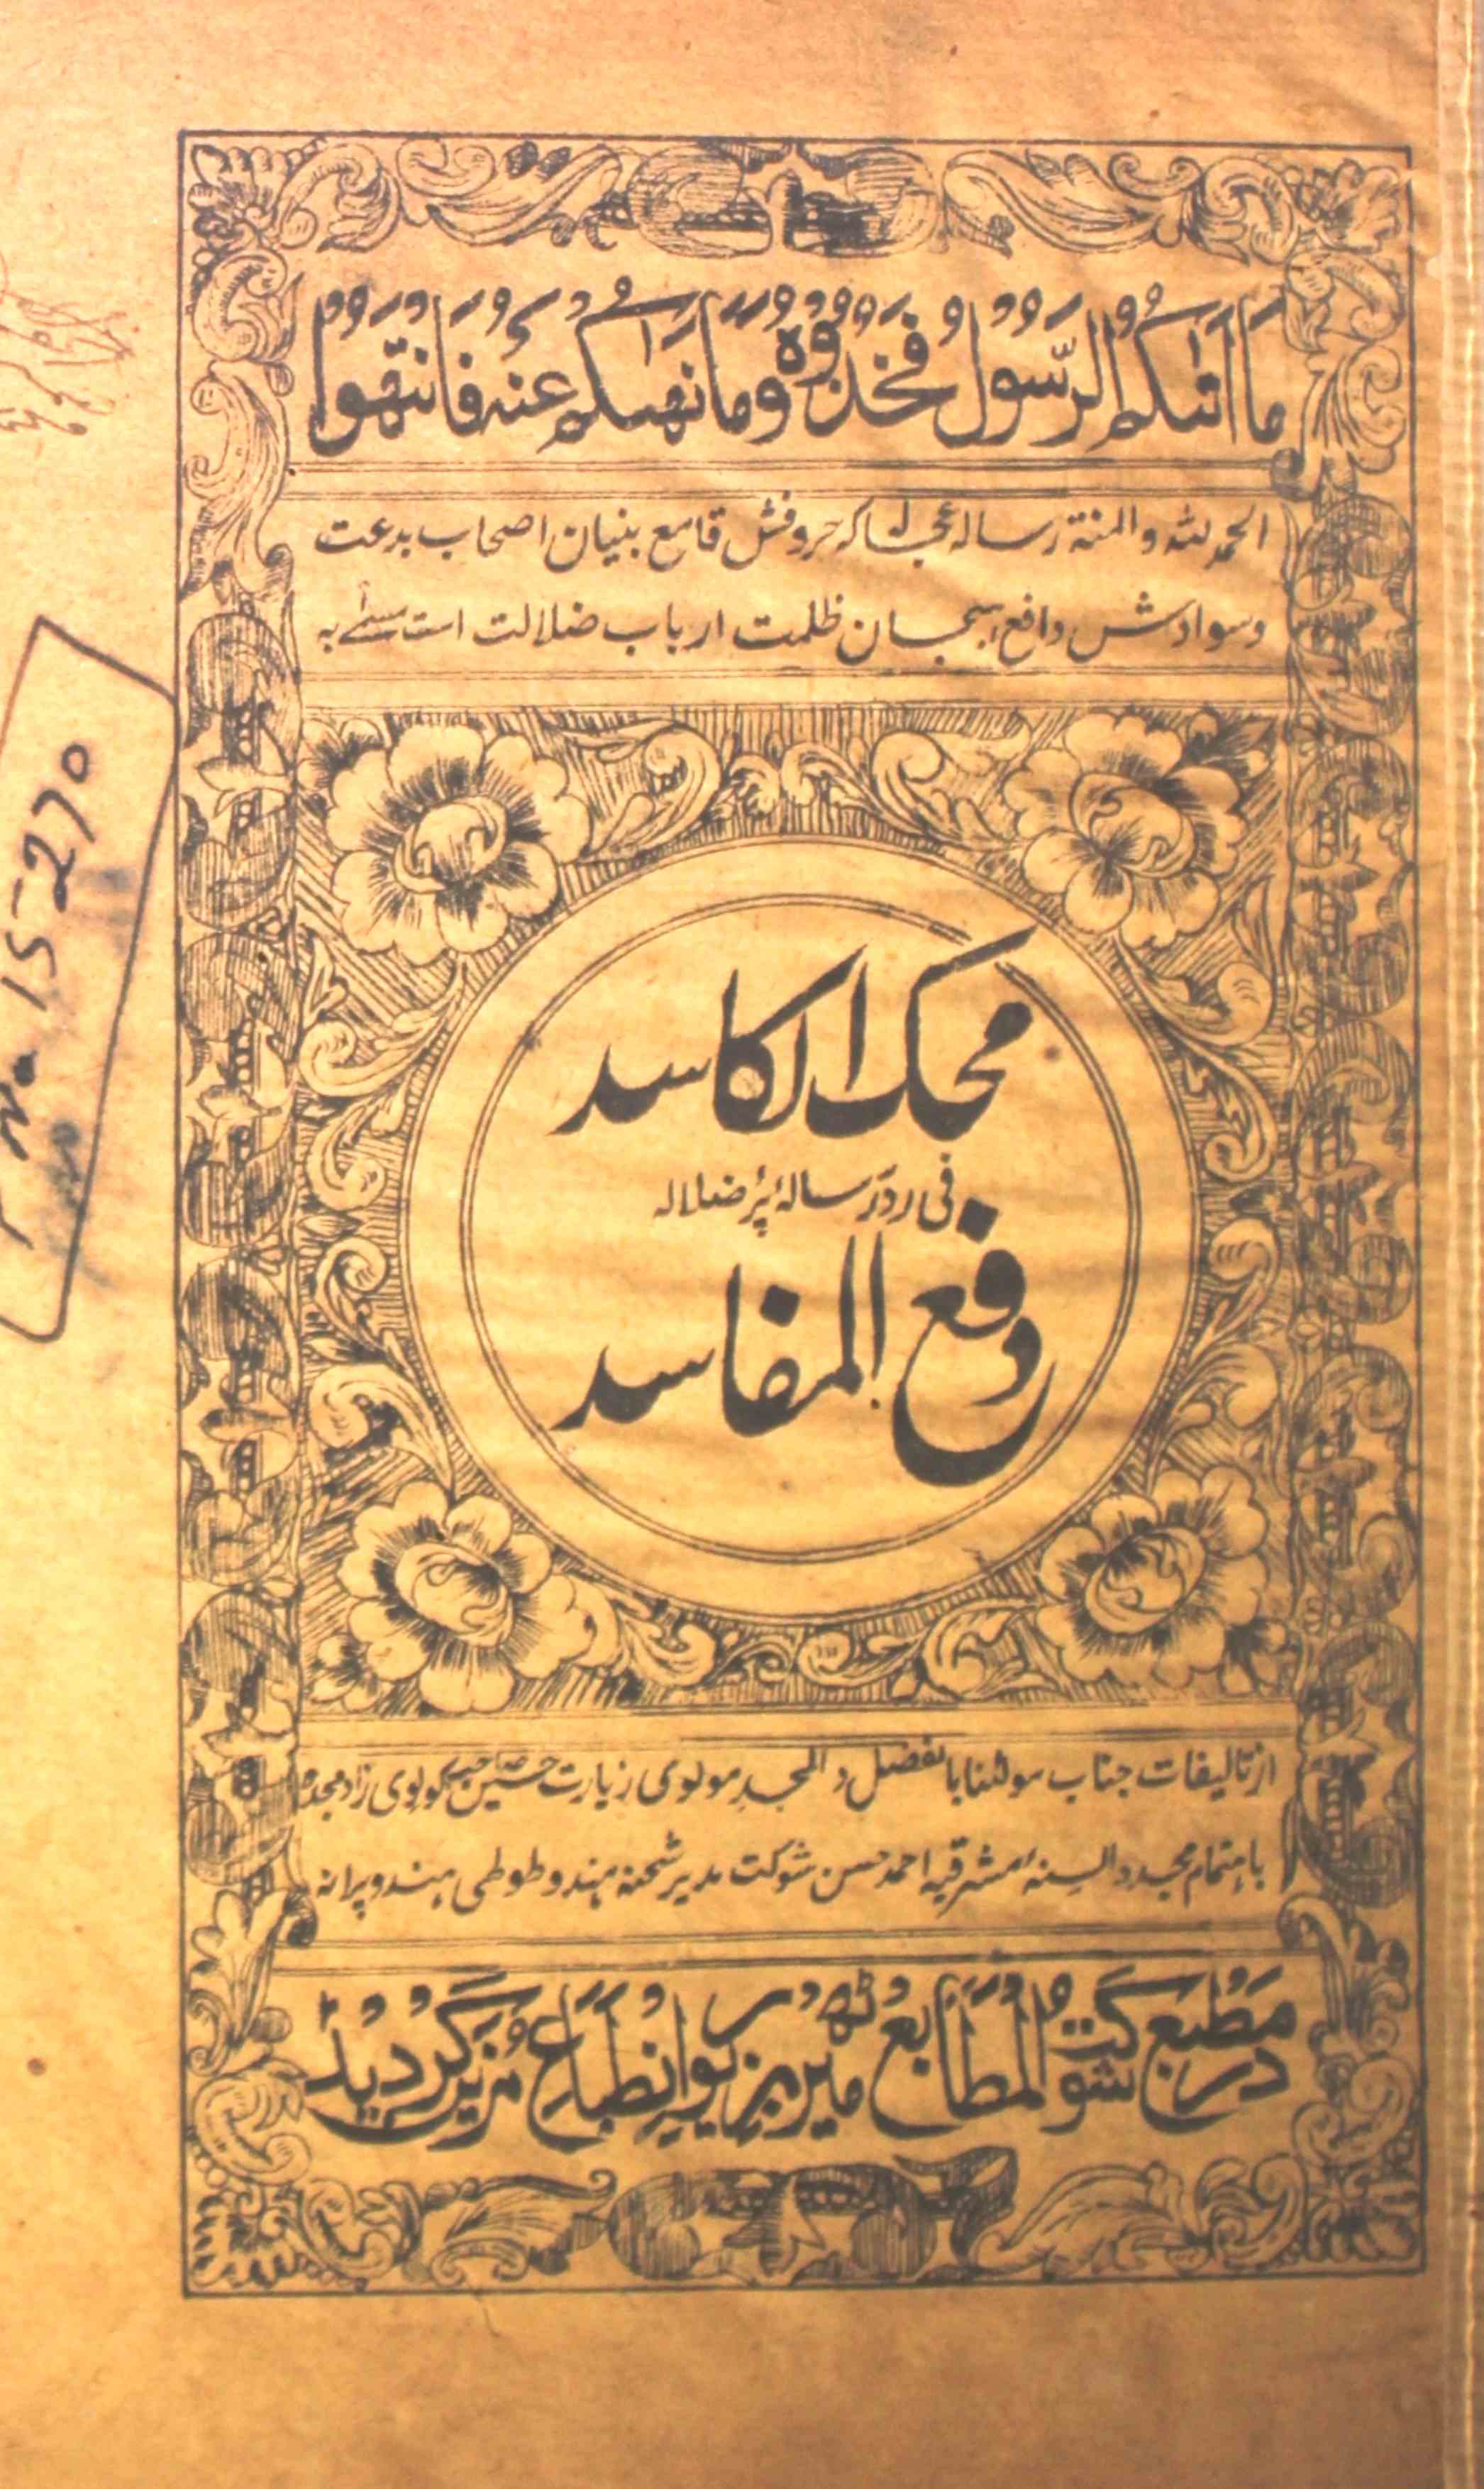 مَا اٰتٰىكُمُ الرَّسُوْلُ فَخُذُوْهُ وَمَا نَهٰىكُمْ عَنْهُ فَانْتَهُوْا
الحمد لله والمنة رسالہ عجالہ کہ حروفش قامع بنیان اصحاب بدعت
وسوادش دافع ہیجان ظلمت ارباب ضلالت است مسمےٰ بہ
محک الکاسد
فی رد رسالۂ پُر ضلالہ
دفع المفاسد
از تالیفات جناب مولٰنا بالفضل و المجد مولوی زیارت حسین صاحب کولوی زاد مجدہ
باہتمام مجدد السنہ مشرقیہ احمد حسن شوکت مدیر شحنہ ہند و طوطی ہند و پروانہ
در مطبع شوکت المطابع میرٹھ بزیور انطباع مزین گردید
No 15-270